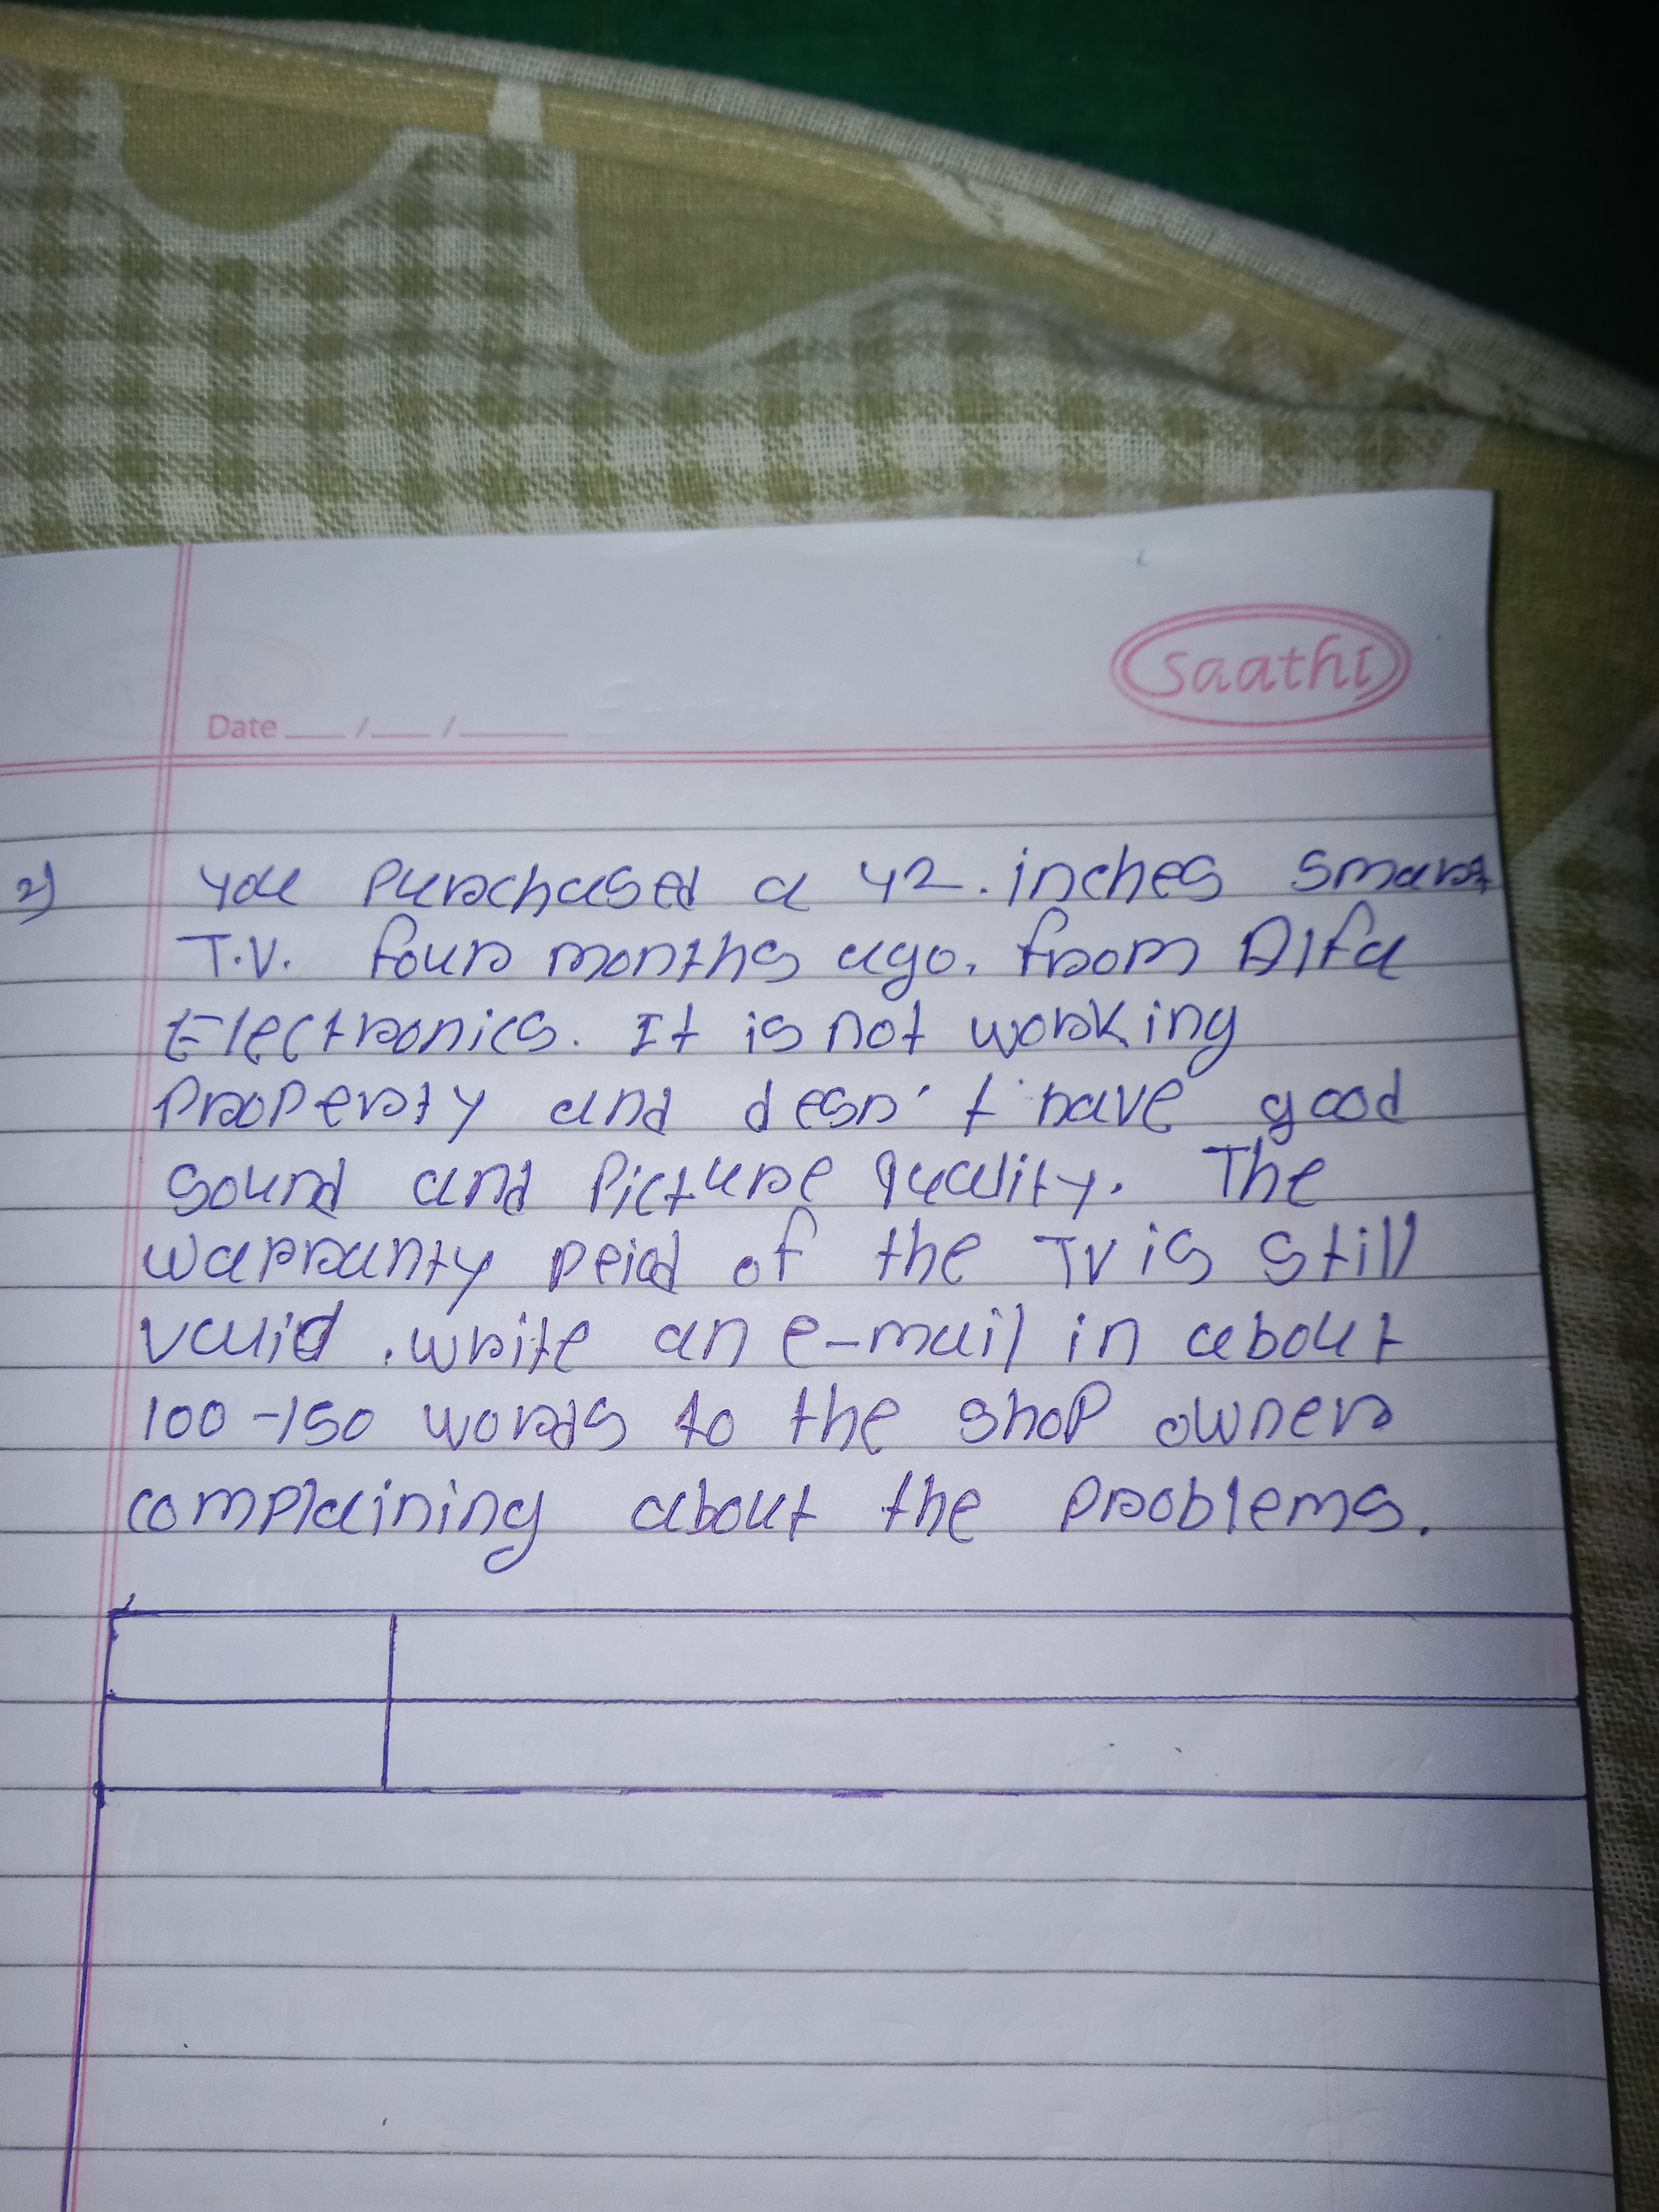 saathi
Date __/__/____
2) You purchased a 42. inches smart
T.V. four months ago. from Alfa
Electronics. It is not working
properly and desn't have good
sound and picture quality. The
warranty peiod of the TV is still
valid. write an e-mail in about
100-150 words to the shop owner
complaining about the problems.